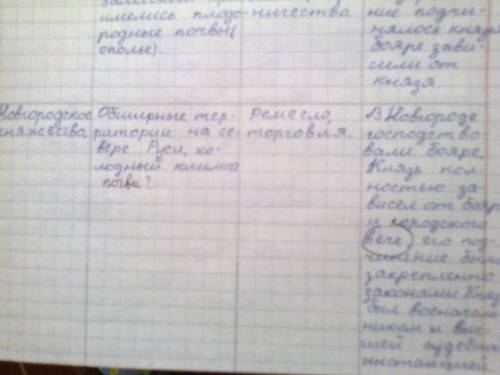 имелись плодо- ничества
родные почвы(
ополье).
ние подчи-
нялось князю
бояре зави-
сили от
князя.
Новгородское
княжества
Обширные тер-
ритории на се-
вере Руси, хо-
лодный климат
почвы?
Ремесло,
торговля.
В Новгороде
господство
вали бояре.
Князь пол-
ностью за
висел от бояр
и городского
вече, его под
чинение было
закрепленно
законами. Князь
был военочаль
ником и выс
шей судебной
инстанцией